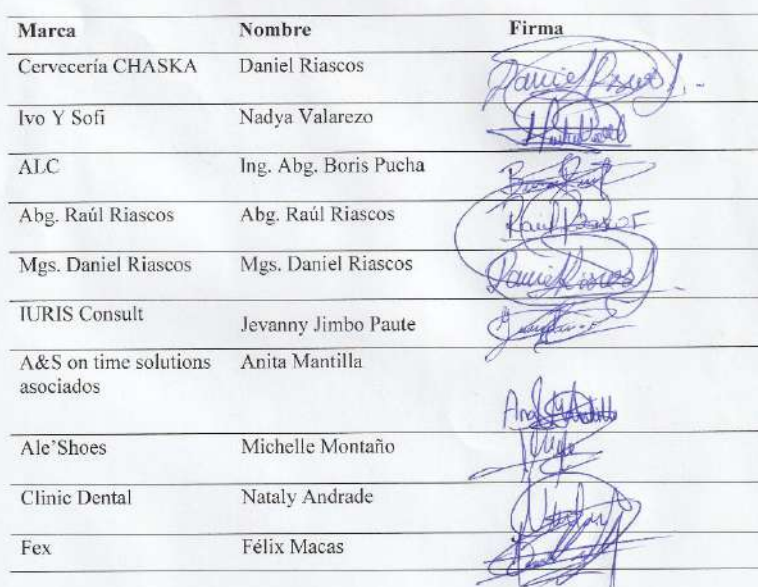 Marca Nombre Firma
Cervecería CHASKA Daniel Riascos Daniel Riascos
Ivo Y Sofi Nadya Valarezo
ALC Ing. Abg. Boris Pucha
Abg. Raúl Riascos Abg. Raúl Riascos Raúl Riascos
Mgs. Daniel Riascos Mgs. Daniel Riascos Daniel Riascos
IURIS Consult Jevanny Jimbo Paute
A&S on time solutions Anita Mantilla
asociados
Ale'Shoes Michelle Montaño
Clinic Dental Nataly Andrade
Fex Félix Macas